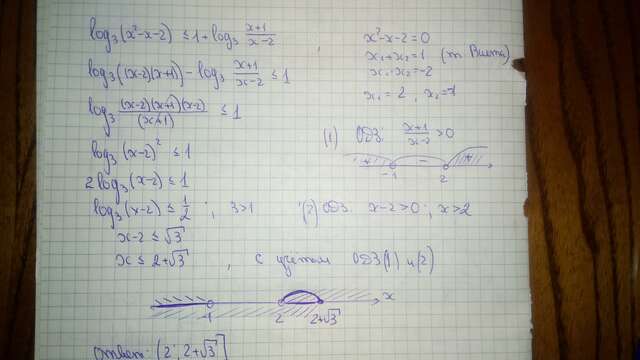 log₃(x²-x-2) ≤ 1 + log₃ (x+1)/(x-2) ,
log₃((x-2)(x+1)) - log₃ (x+1)/(x-2) ≤ 1
log₃ (x-2)(x+1)(x-2)/(x+1) ≤ 1
log₃(x-2)² ≤ 1
2log₃(x-2) ≤ 1
log₃(x-2) ≤ 1/2 ; 3>1
x-2 ≤ √3
x ≤ 2+√3 , с учетом ОДЗ(1) и (2)
x²-x-2=0
x₁+x₂=1 (т Виета)
x₁·x₂=-2
x₁=2, x₂=-1
(1) ОДЗ: (x+1)/(x-2) >0
+ - +
-1 2
(2) ОДЗ: x-2>0; x>2
x
-1 2 2+√3
Ответ: (2; 2+√3]